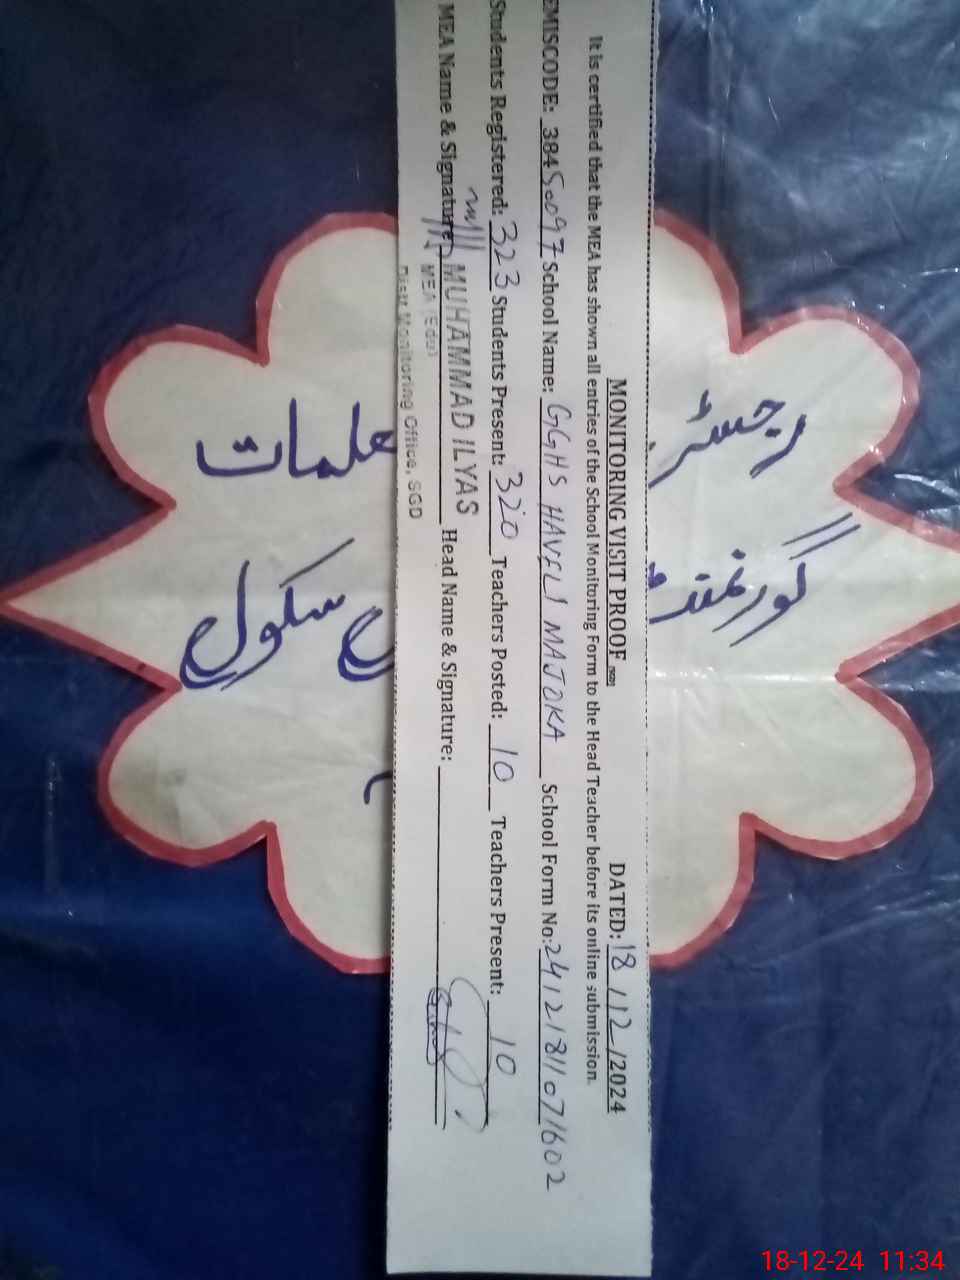 MONITORING VISIT PROOF DATED: 18/12/2024
It is certified that the MEA has shown all entries of the School Monitoring Form to the Head Teacher before its online submission.
EMISCODE: 38450097 School Name: GGHS HAVELI MAJOKA School Form No: 24121811071602
Students Registered: 323 Students Present: 320 Teachers Posted: 10 Teachers Present: 10
MEA Name & Signature MUHAMMAD ILYAS Head Name & Signature:
MEA (Edu)
Distt Monitoring Office, SGD
رجسٹر
علمات
گورنمنٹ
سکول
18-12-24 11:34